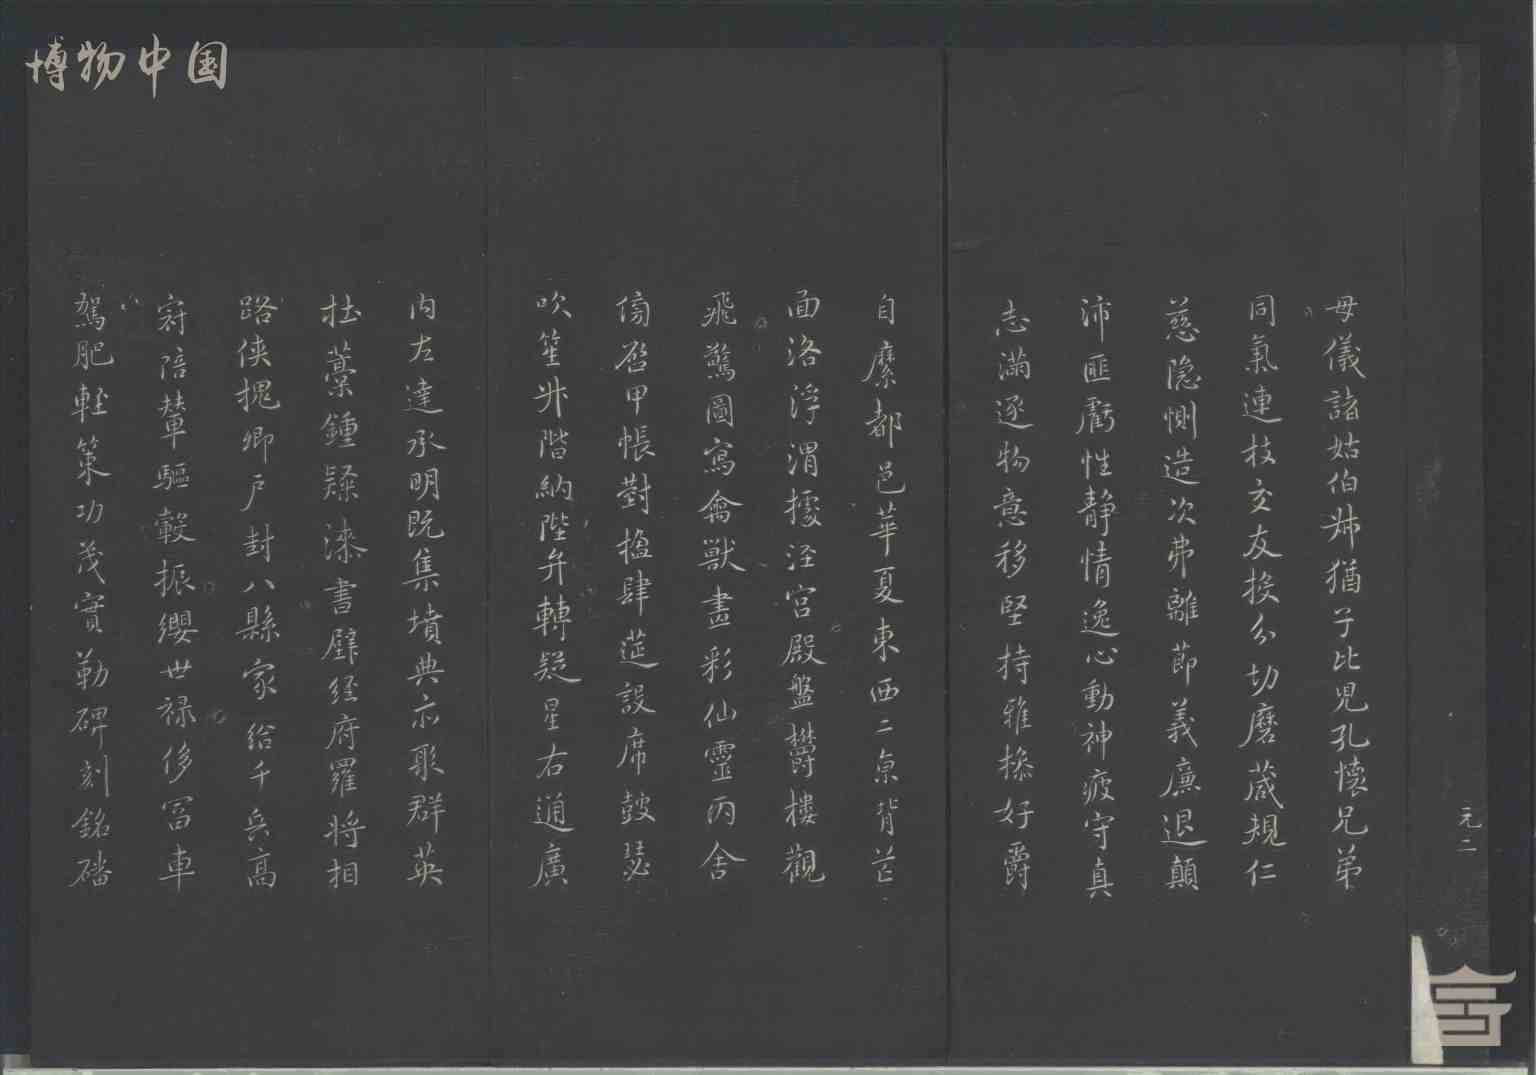 博物中国
元二
母儀諸姑伯叔猶子比兒孔懷兄弟
同氣連枝交友投分切磨葴規仁
慈隐惻造次弗離節義廉退顛
沛匪虧性静情逸心動神疲守真
志滿逐物意移堅持雅操好爵
自縻都邑華夏東西二京背芒
面洛浮渭據泾宫殿盤欝樓觀
飛驚圖寫禽獸畫彩仙靈丙舍
傍啓甲帳對楹肆莚設席鼓瑟
吹笙升階納陛弁轉疑星右通廣
内左達承明既集墳典亦聚群英
杜藁鍾隸漆書壁経府羅将相
路侠槐卿户封八縣家給千兵高
冠陪輦驅轂振纓世禄侈富車
駕肥軽策功茂實勒碑刻銘磻